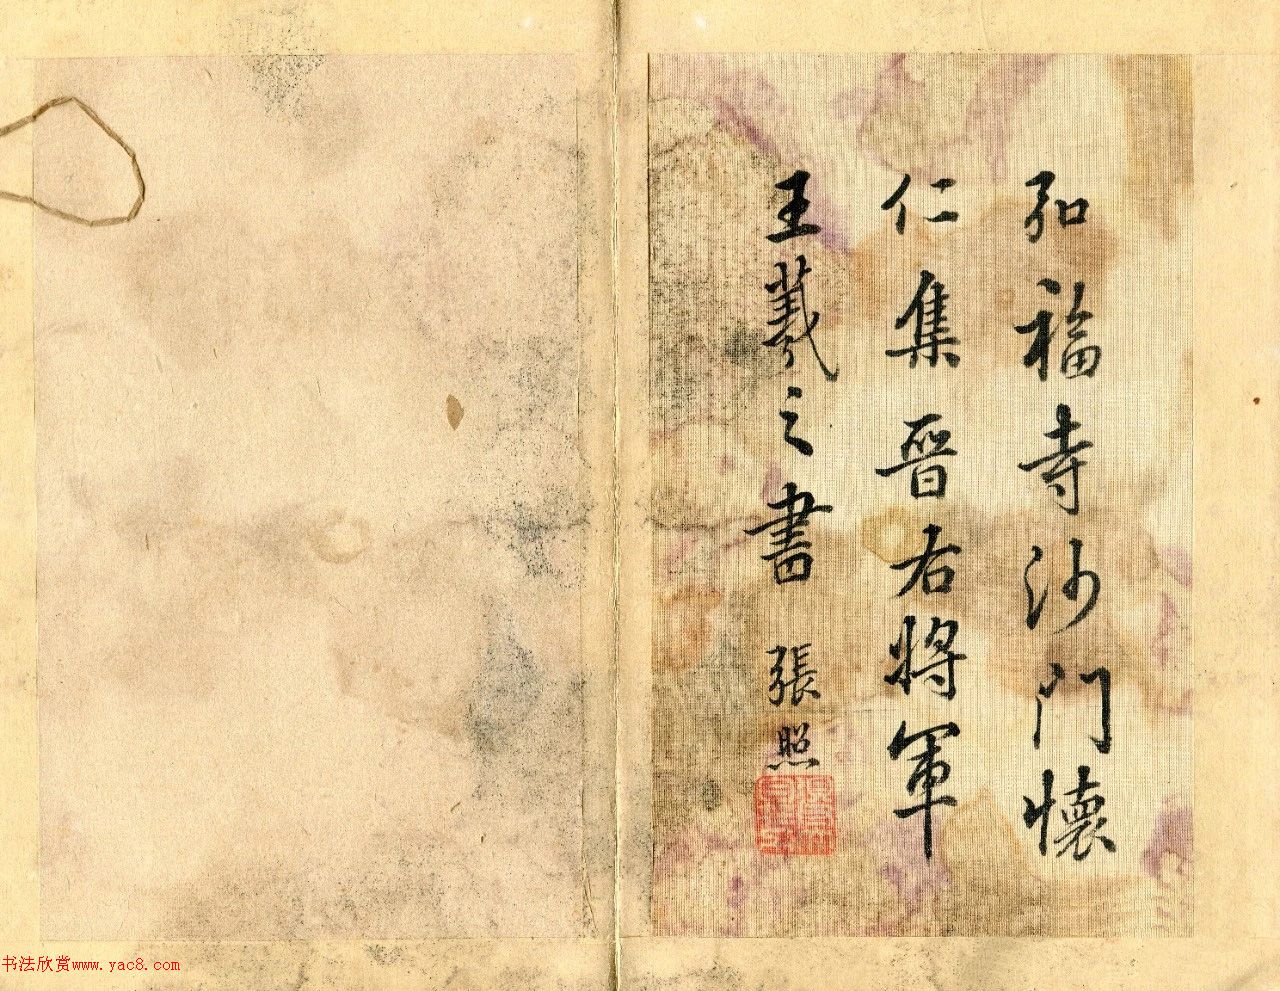 弘福寺沙門懷
仁集晉右將軍
王羲之書 張照
书法欣赏www.yac8.com